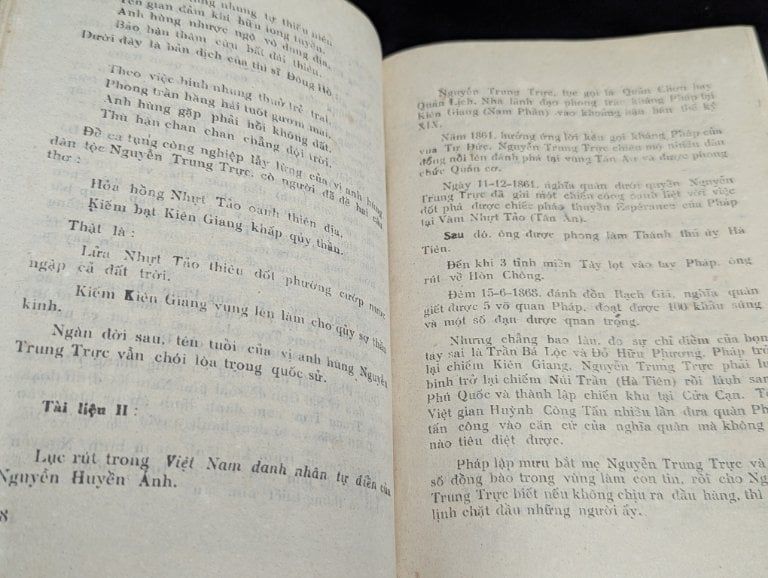 nhung tự thiếu niên
Yên gian đảm khí hữu long tuyền,
Anh hùng nhược ngộ vô dung địa,
Báo hận thâm cừu bất đái thiên.
Dưới đây là bản dịch của thi sĩ Đông Hồ.
Theo việc binh nhung thuở trẻ trai,
Phong trần hăng hái tuốt gươm mai,
Anh hùng gặp phải hồi không đất,
Thù hận chan chan chẳng đội trời.
Để ca tụng công nghiệp lẫy lừng của vị anh hùng
dân tộc Nguyễn Trung Trực, có người đã đề hai câu
thơ :
Hỏa hồng Nhựt Tảo oanh thiên địa,
Kiếm bạt Kiên Giang khấp qủy thần.
Thật là :
Lửa Nhựt Tảo thiêu đốt phường cướp nước
ngập cả đất trời.
Kiếm Kiên Giang vụng lên làm cho qủy sợ thần
kinh.
Ngàn đời sau, tên tuổi của vị anh hùng Nguyễn
Trung Trực vẫn chói lòa trong quốc sử.
Tài liệu II :
Lục rút trong Việt Nam danh nhân tự điển của
Nguyễn Huyền Anh.
8
Nguyễn Trung Trực, tục gọi là Quản Chơn hay
Quản Lịch. Nhà lãnh đạo phong trào kháng Pháp tại
Kiên Giang (Nam Phần) vào khoảng sau bán thế kỷ
XIX.
Năm 1861, hưởng ứng lời kêu gọi kháng Pháp của
vua Tự Đức, Nguyễn Trung Trực chiêu mộ nhiều dân
đồng nổi lên đánh phá tại vùng Tân An và được phong
chức Quản cơ.
Ngày 11-12-1861, nghĩa quân dưới quyền Nguyễn
Trung Trực đã gửi một chiến công oanh liệt với việc
đốt phá được chiếc pháo thuyền Espérance của Pháp
tại Vàm Nhựt Tảo (Tân An).
Sau đó, ông được phong làm Thành thủ úy Hà
Tiên.
Đến khi 3 tỉnh miền Tây lọt vào tay Pháp, ông
rút về Hòn Chông.
Đêm 15-6-1868, đánh đồn Rạch Giá, nghĩa quân
giết được 5 võ quan Pháp, đoạt được 100 khẩu súng
và một số đạn dược quan trọng.
Nhưng chẳng bao lâu, do sự chỉ điểm của bọn
tay sai là Trần Bá Lộc và Đỗ Hữu Phương, Pháp trở
lại chiếm Kiên Giang, Nguyễn Trung Trực phải lui
binh trở lại chiếm Núi Trần (Hà Tiên) rồi lánh sang
Phú Quốc và thành lập chiến khu tại Cửa Cạn.
Việt gian Huỳnh Công Tấn nhiều lần đưa quân Pháp
tấn công vào căn cứ của nghĩa quân mà không
nào tiêu diệt được.
Pháp lập mưu bắt mẹ Nguyễn Trung Trực và
số đồng bào trong vùng làm con tin, rồi cho Ng
Trung Trực biết nếu không chịu ra đầu hàng, thì
lịnh chặt đầu những người ấy.